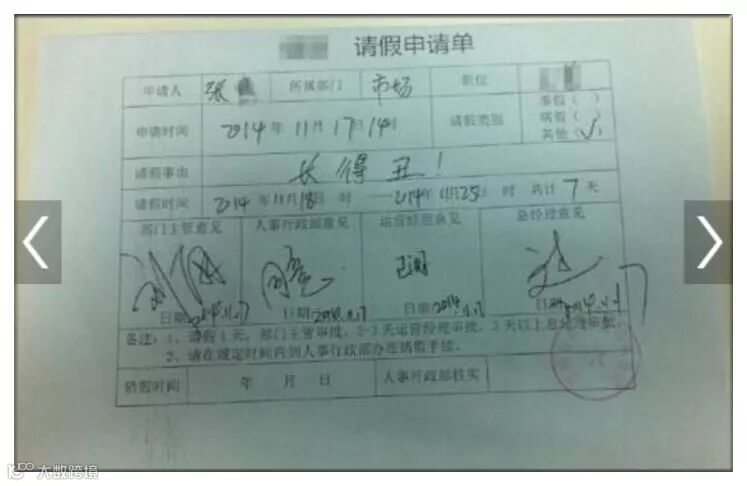 请假申请单
申请人 张 所属部门 市场 职位
申请时间 2014年11月17日14时 请假类别 事假( ) 病假( ) 其他(√)
请假事由 长得丑!
请假时间 2014年11月18日 时 — 2014年11月25日 时 共计7天
部门主管意见 人事行政部意见 运营经理意见 总经理意见
日期:2014.11.17 日期:2014.11.17 日期:2014.11.17 日期:2014.11.17
备注:1、请假1天,部门主管审批,2-3天运营经理审批,3天以上总经理审批。
2、请在规定时间内到人事行政部办连销假手续。
销假时间 年 月 日 人事行政部核实
大数跨境